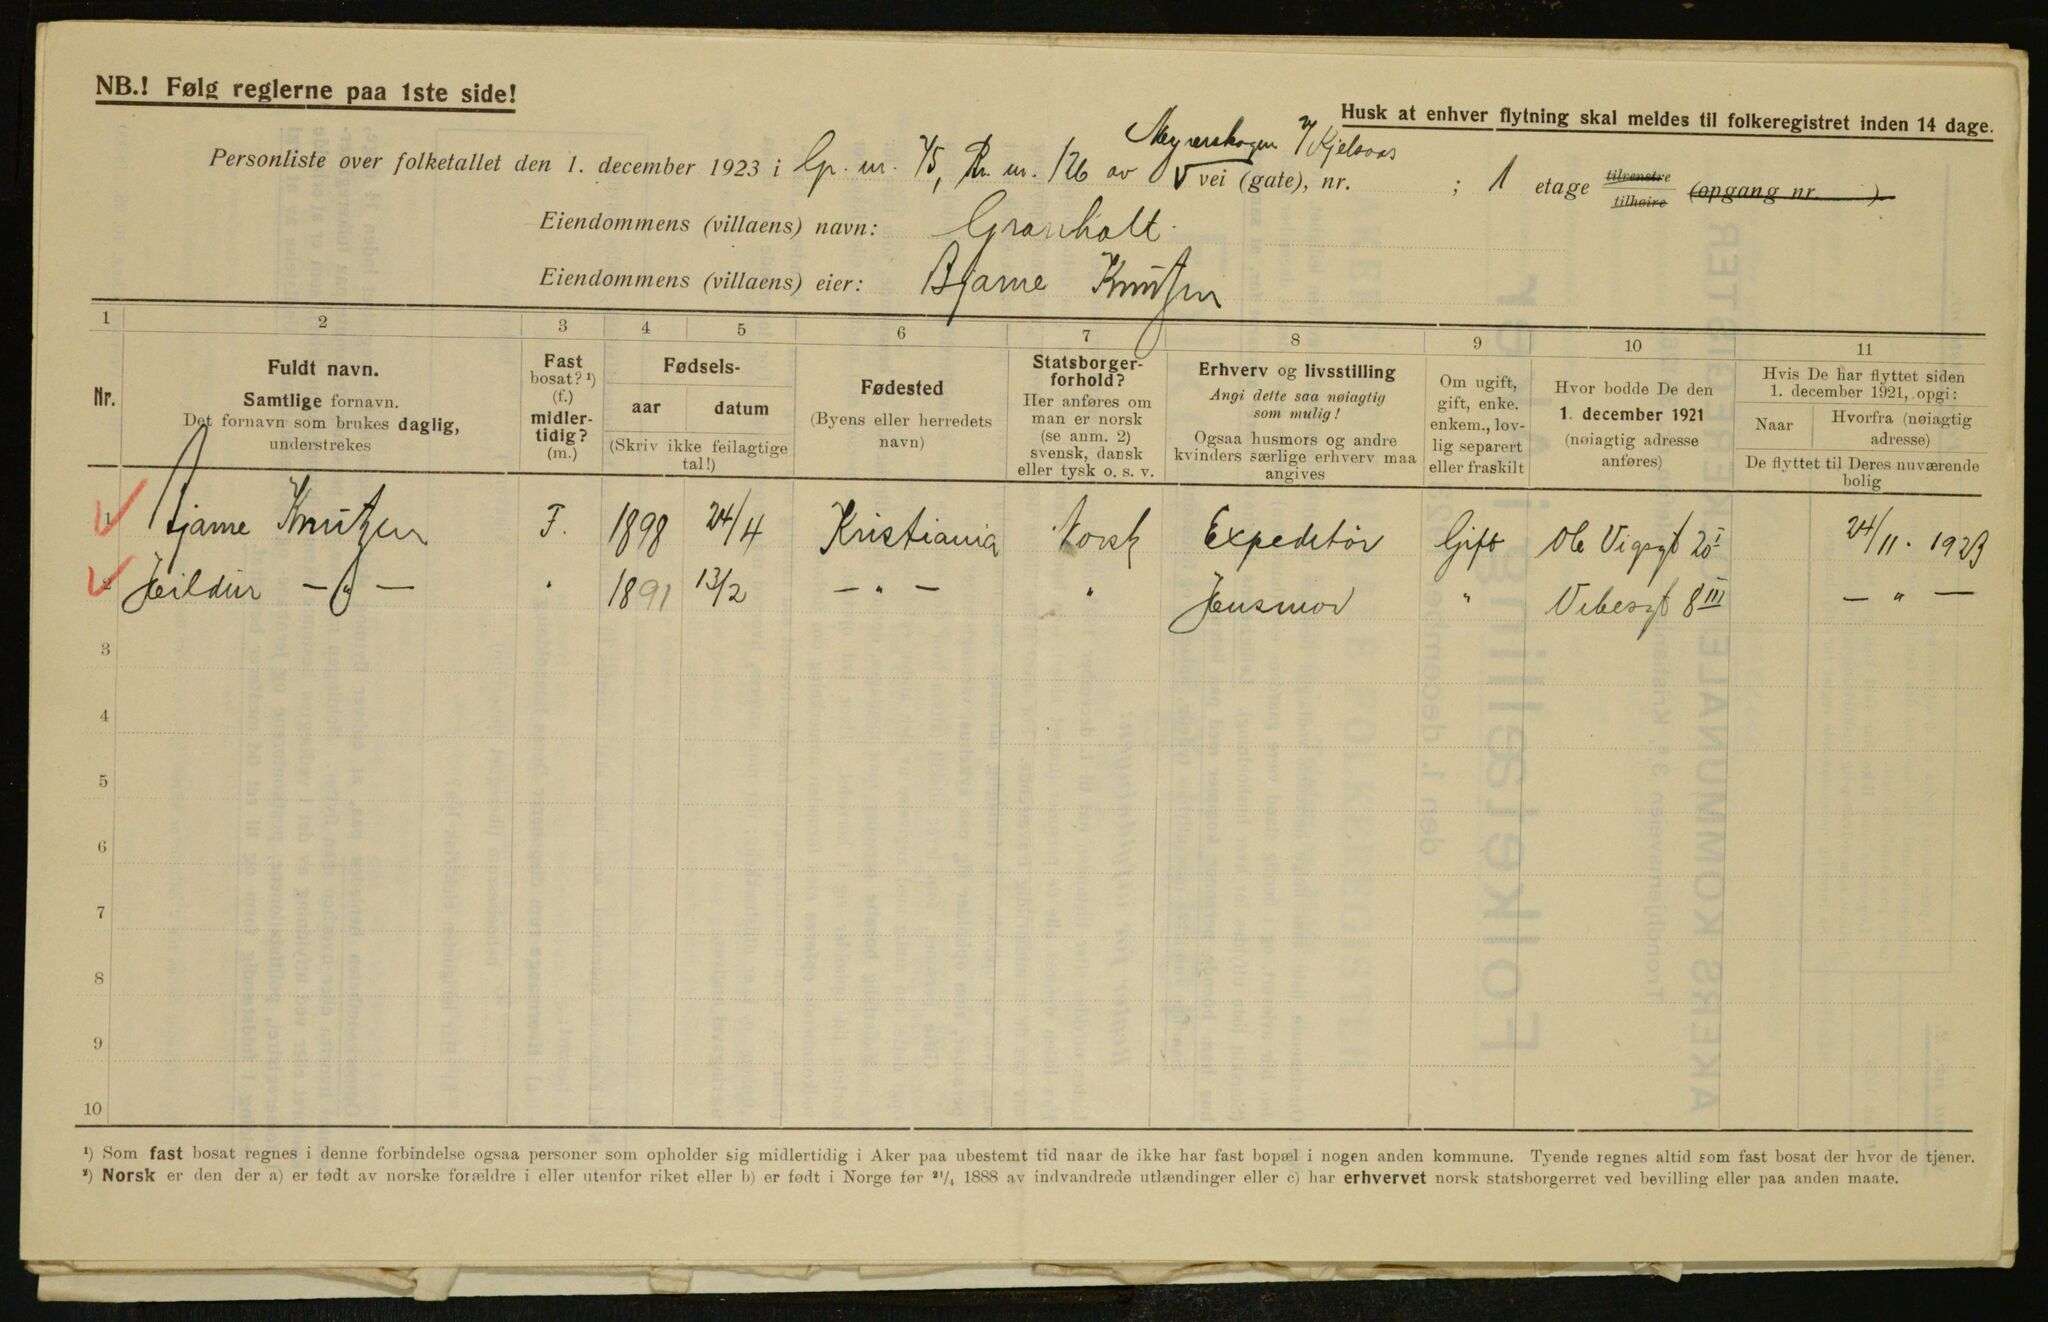 NB.! Følg reglerne paa 1ste side!
Husk at enhver flytning skal meldes til folkeregistret inden 14 dage.
Meyerskogen v/ Kjelsaas
Personliste over folketallet den 1. december 1923 i Gr. nr. 75, Br. nr. 126 av vei (gate), nr. ; 1 etage tilvenstre tilhøire (opgang nr. )
Eiendommens (villaens) navn: Granholt
Eiendommens (villaens) eier: Bjarne Knutzen
1 2 3 4 5 6 7 8 9 10 11
Nr.
Fuldt navn.
Samtlige fornavn.
Det fornavn som brukes daglig,
understrekes
Fast
bosat? ¹)
(f.)
midler-
tidig?
(m.)
Fødsels-
aar datum
(Skriv ikke feilagtige
tal!)
Fødested
(Byens eller herredets
navn)
Statsborger-
forhold?
Her anføres om
man er norsk
(se anm. 2)
svensk, dansk
eller tysk o. s. v.
Erhverv og livsstilling
Angi dette saa nøiagtig
som mulig!
Ogsaa husmors og andre
kvinders særlige erhverv maa
angives
Om ugift,
gift, enke.
enkem., lov-
lig separert
eller fraskilt
Hvor bodde De den
1. december 1921
(nøiagtig adresse
anføres)
Hvis De har flyttet siden
1. december 1921, opgi:
Naar Hvorfra (nøiagtig
adresse)
De flyttet til Deres nuværende
bolig
1 Bjarne Knutzen F. 1898 24/4 Kristiania Norsk Expeditør Gift Ole Vigsgt 20 I 24/11 - 1923
2 Heildur — " — " 1891 13/2 — " — " Husmor " Vibesgt 8 III — " —
3
4
5
6
7
8
9
10
¹) Som fast bosat regnes i denne forbindelse ogsaa personer som opholder sig midlertidig i Aker paa ubestemt tid naar de ikke har fast bopæl i nogen anden kommune. Tyende regnes altid som fast bosat der hvor de tjener.
²) Norsk er den der a) er født av norske forældre i eller utenfor riket eller b) er født i Norge før 21/4 1888 av indvandrede utlændinger eller c) har erhvervet norsk statsborgerret ved bevilling eller paa anden maate.